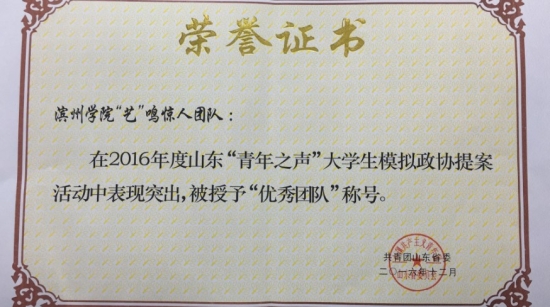 荣誉证书
滨州学院“艺”鸣惊人团队：
在2016年度山东“青年之声”大学生模拟政协提案
活动中表现突出，被授予“优秀团队”称号。
共青团山东省委
二〇一六年十二月